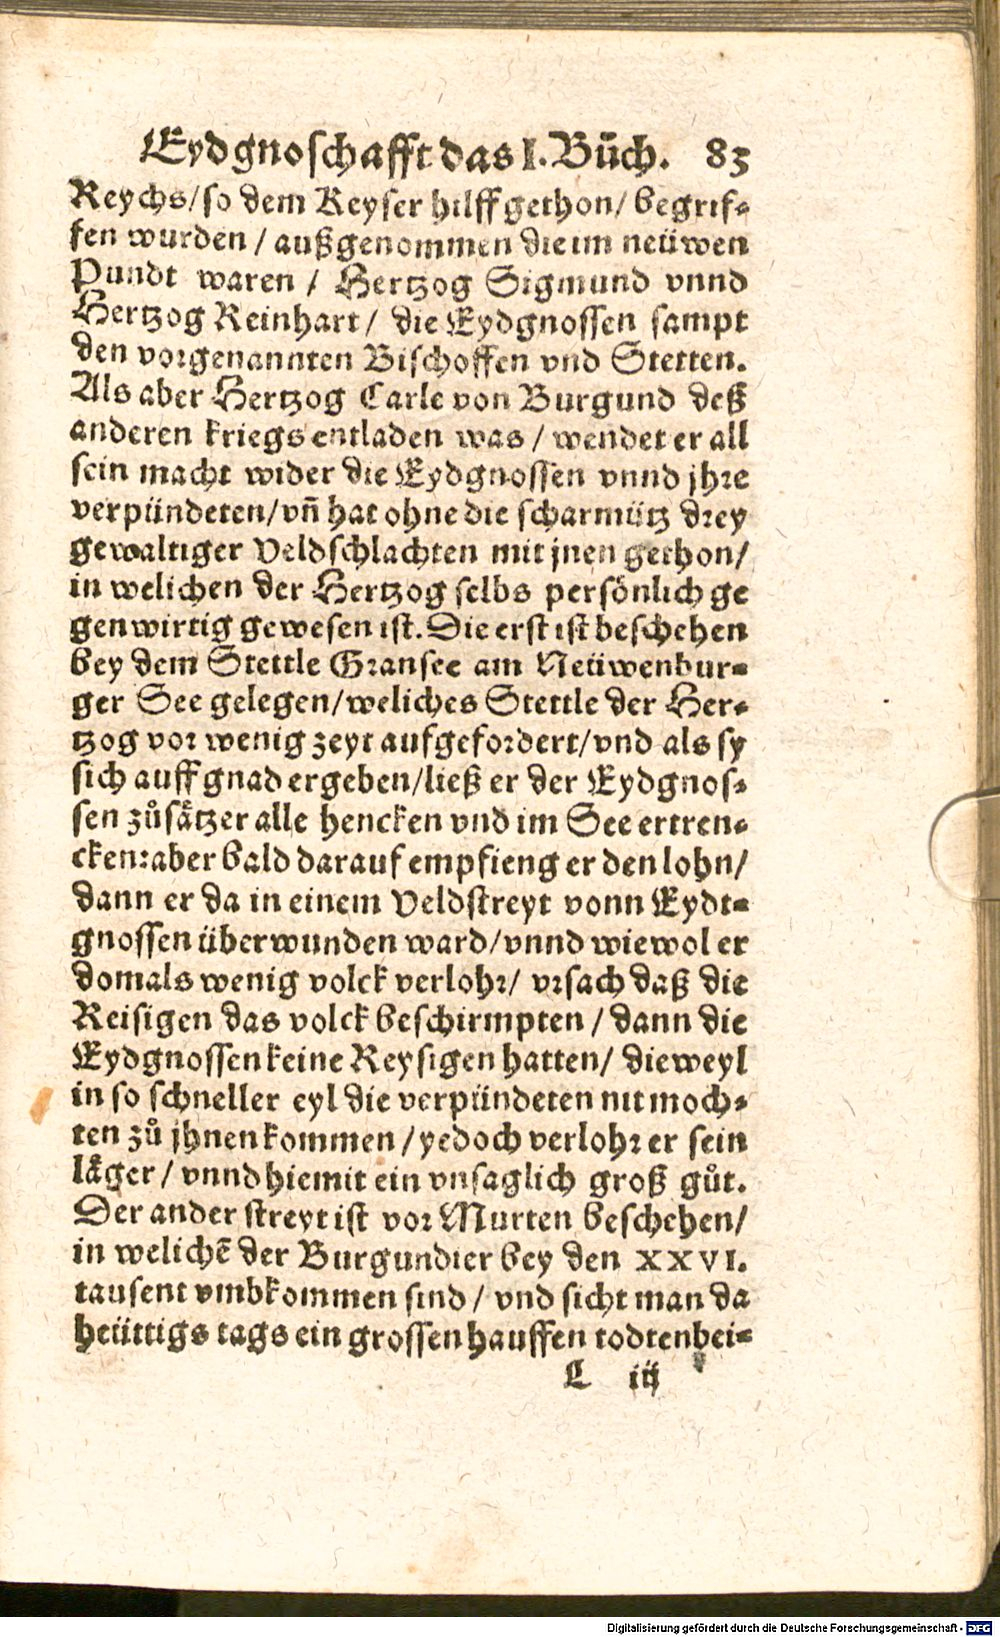 Eydgnoschafft das I. Bůch. 83
Reychs/ so dem Keyser hilff gethon/ begrif-
fen wurden / außgenommen die im neüwen
Pundt waren / Hertzog Sigmund vnnd
Hertzog Reinhart/ die Eydgnossen sampt
den vorgenannten Bischoffen vnd Stetten.
Als aber Hertzog Carle von Burgund deß
anderen kriegs entladen was / wendet er all
sein macht wider die Eydgnossen vnnd jhre
verpündeten/ vñ hat ohne die scharmütz drey
gewaltiger Veldschlachten mit jnen gethon/
in welichen der Hertzog selbs persönlich ge
genwirtig gewesen ist. Die erst ist beschehen
bey dem Stettle Gransee am Neüwenbur-
ger See gelegen/ weliches Stettle der Her-
tzog vor wenig zeyt aufgefordert/ vnd als sy
sich auff gnad ergeben/ ließ er der Eydgnos-
sen zůsätzer alle hencken vnd im See ertren-
cken: aber bald darauf empfieng er den lohn/
dann er da in einem Veldstreyt vonn Eydt-
gnossen überwunden ward/ vnnd wiewol er
domals wenig volck verlohr/ vrsach daß die
Reisigen das volck beschirmpten / dann die
Eydgnossen keine Reysigen hatten/ dieweyl
in so schneller eyl die verpündeten nit moch-
ten zů jhnen kommen / yedoch verlohr er sein
läger / vnnd hiemit ein vnsaglich groß gůt.
Der ander streyt ist vor Murten beschehen/
in welichē der Burgundier bey den XXVI.
tausent vmbkommen sind / vnd sicht man da
heüttigs tags ein grossen hauffen todtenbei-
L iij
Digitalisierung gefördert durch die Deutsche Forschungsgemeinschaft - DFG